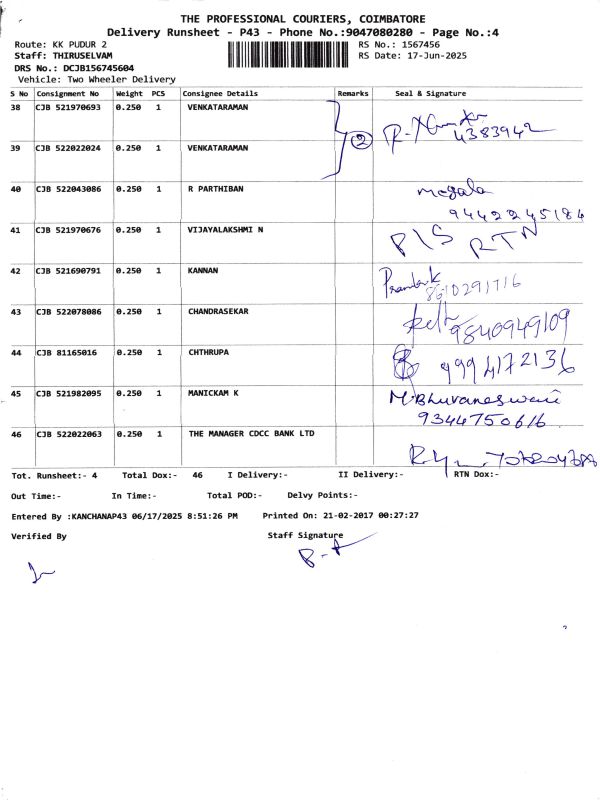 THE PROFESSIONAL COURIERS, COIMBATORE
Delivery Runsheet - P43 - Phone No.:9047080280 - Page No.:4
Route: KK PUDUR 2
RS No.: 1567456
Staff: THIRUSELVAM
RS Date: 17-Jun-2025
DRS No.: DCJB156745604
Vehicle: Two Wheeler Delivery
S No Consignment No Weight PCS Consignee Details Remarks Seal & Signature
38 CJB 521970693 0.250 1 VENKATARAMAN
2
4383942
39 CJB 522022024 0.250 1 VENKATARAMAN
40 CJB 522043086 0.250 1 R PARTHIBAN megala
9442245184
41 CJB 521970676 0.250 1 VIJAYALAKSHMI N P/S RTN
42 CJB 521690791 0.250 1 KANNAN
8610291716
43 CJB 522078086 0.250 1 CHANDRASEKAR
9840949109
44 CJB 81165016 0.250 1 CHTHRUPA 9994172136
45 CJB 521982095 0.250 1 MANICKAM K M.Bhuvaneswari
9344750616
46 CJB 522022063 0.250 1 THE MANAGER CDCC BANK LTD
Tot. Runsheet:- 4 Total Dox:- 46 I Delivery:- II Delivery:- RTN Dox:-
Out Time:- In Time:- Total POD:- Delvy Points:-
Entered By :KANCHANAP43 06/17/2025 8:51:26 PM Printed On: 21-02-2017 00:27:27
Verified By Staff Signature